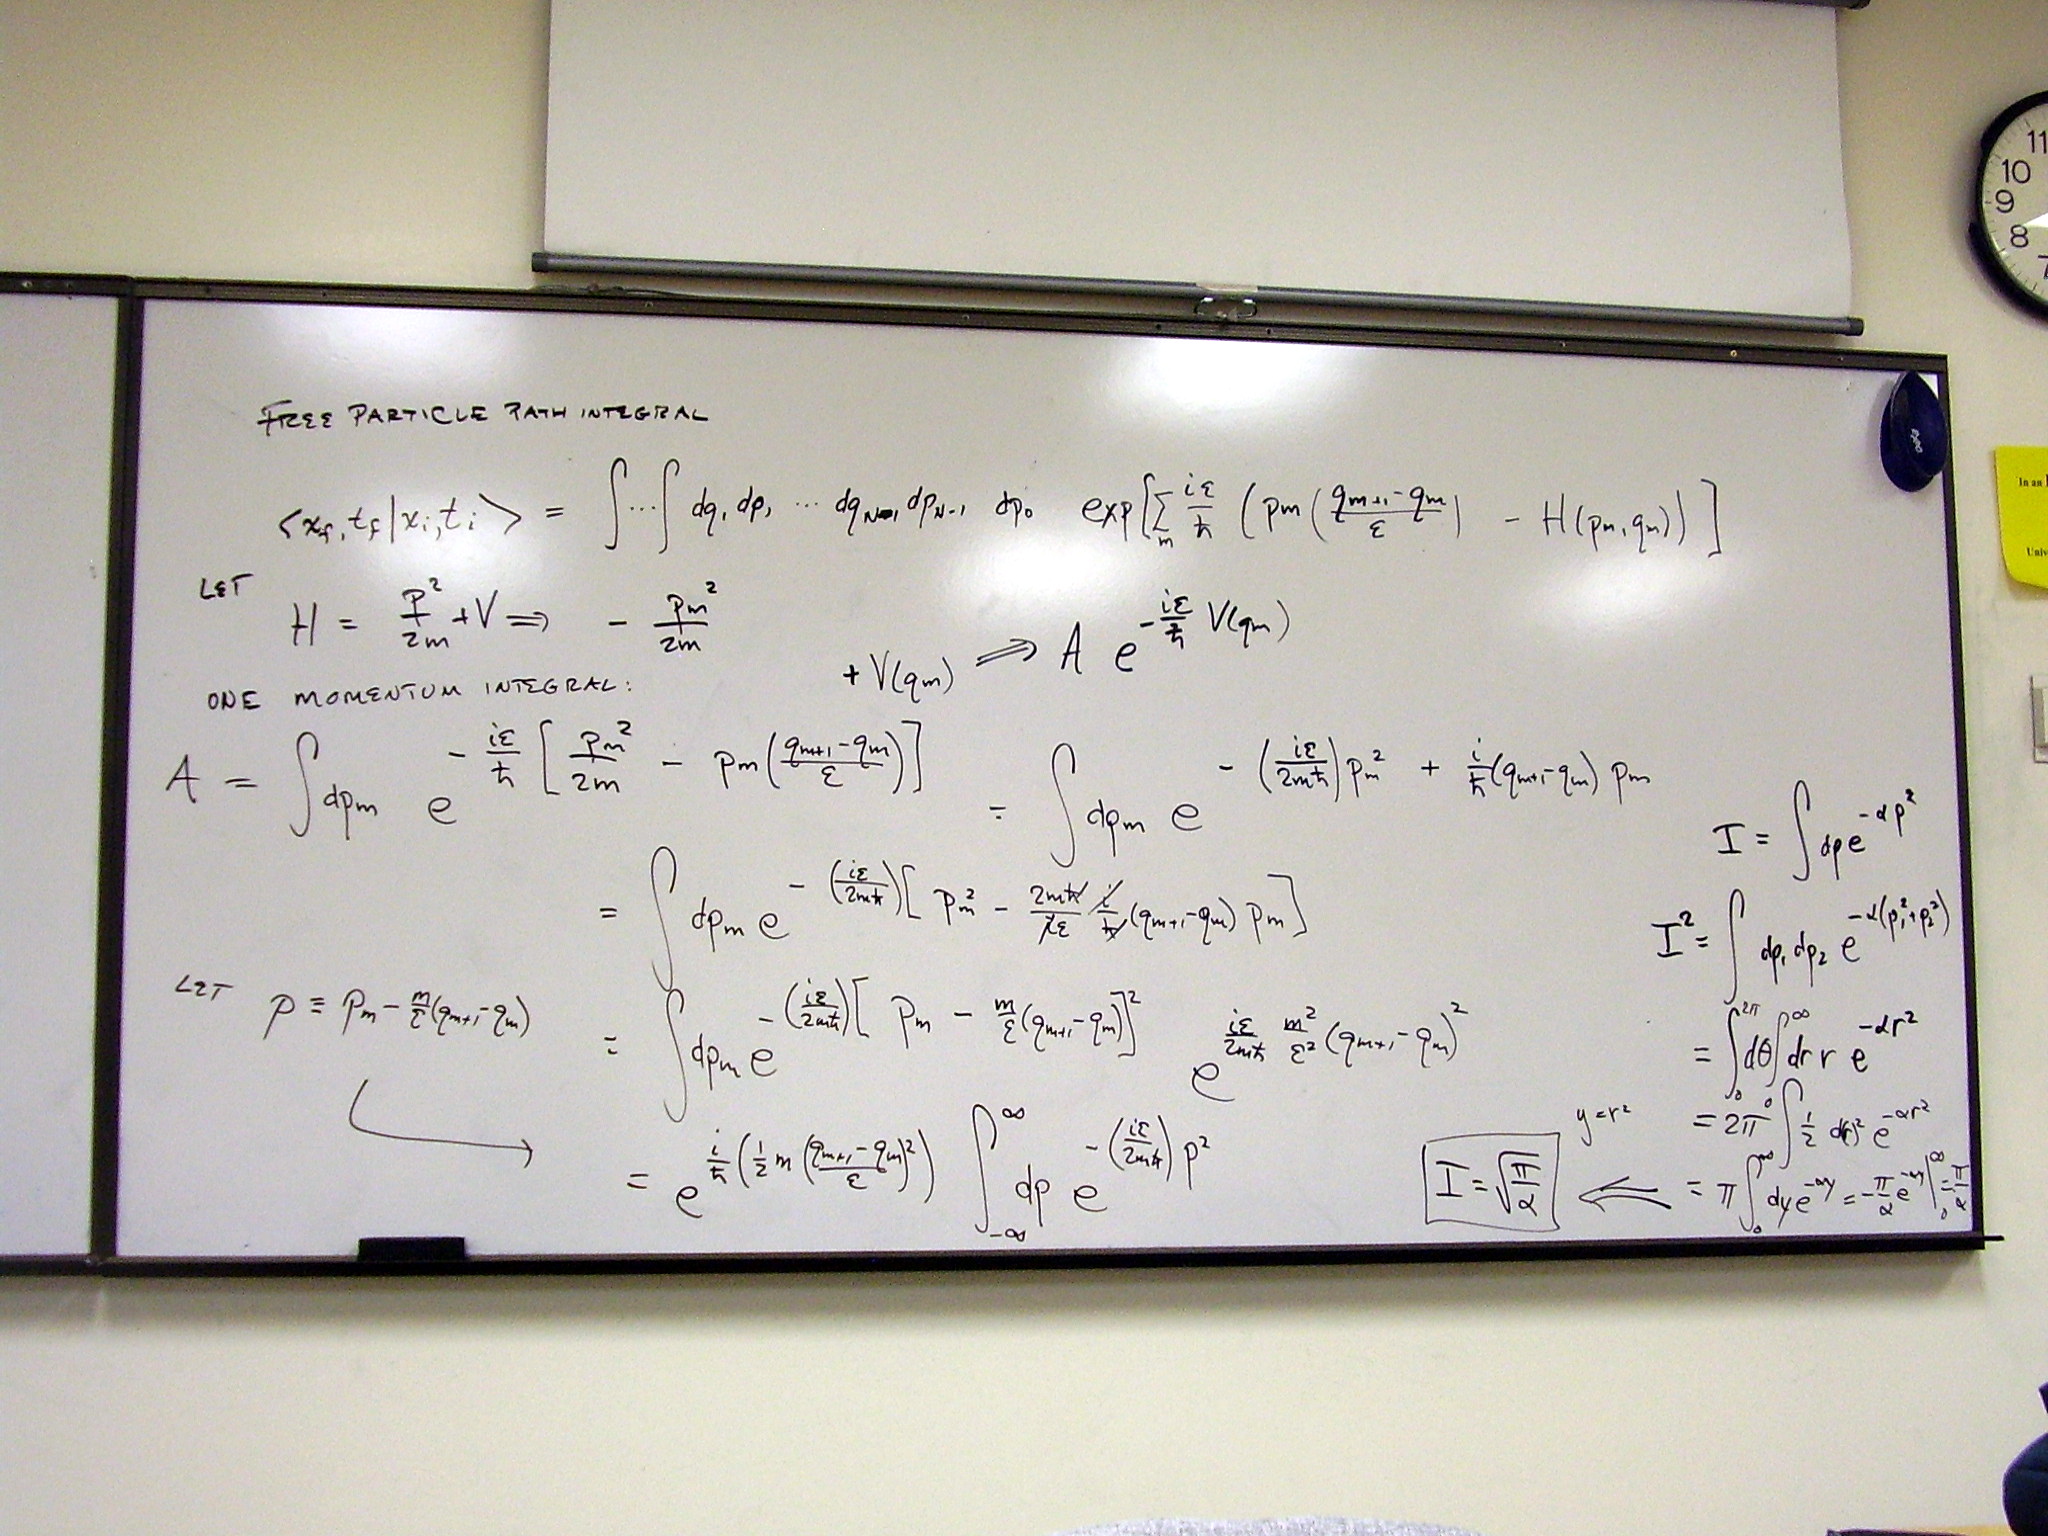 11
10
9
8
7
FREE PARTICLE PATH INTEGRAL
In an
Univ
⟨x_f, t_f | x_i, t_i⟩ = ∫⋯∫ dq₁ dp₁ ⋯ dq_{N-1} dp_{N-1} dp₀ exp[∑_m iε/ħ (p_m((q_{m+1} - q_m)/ε) - H(p_m, q_m))]
LET H = p²/2m + V ⇒ - p_m²/2m + V(q_m) ⟹ A e^{-iε/ħ V(q_m)}
ONE MOMENTUM INTEGRAL:
A = ∫dp_m e^{-iε/ħ [p_m²/2m - p_m((q_{m+1} - q_m)/ε)]} = ∫dp_m e^{-(iε/2mħ)p_m² + i/ħ (q_{m+1} - q_m) p_m}
= ∫dp_m e^{-(iε/2mħ)[p_m² - 2mħ/iε i/ħ (q_{m+1} - q_m) p_m]}
LET p ≡ p_m - m/ε (q_{m+1} - q_m)
= ∫dp_m e^{-(iε/2mħ)[p_m - m/ε (q_{m+1} - q_m)]²} e^{iε/2mħ m²/ε² (q_{m+1} - q_m)²}
= e^{i/ħ (½ m (q_{m+1} - q_m)²/ε)} ∫_{-∞}^{∞} dp e^{-(iε/2mħ) p²}
I = ∫dp e^{-αp²}
I² = ∫dp₁ dp₂ e^{-α(p₁² + p₂²)}
= ∫₀^{2π} dθ ∫₀^∞ dr r e^{-αr²}
y = r² = 2π ∫ ½ d(r)² e^{-αr²}
= π ∫₀^∞ dy e^{-αy} = -π/α e^{-αy} |₀^∞ = π/α
I = √(π/α)